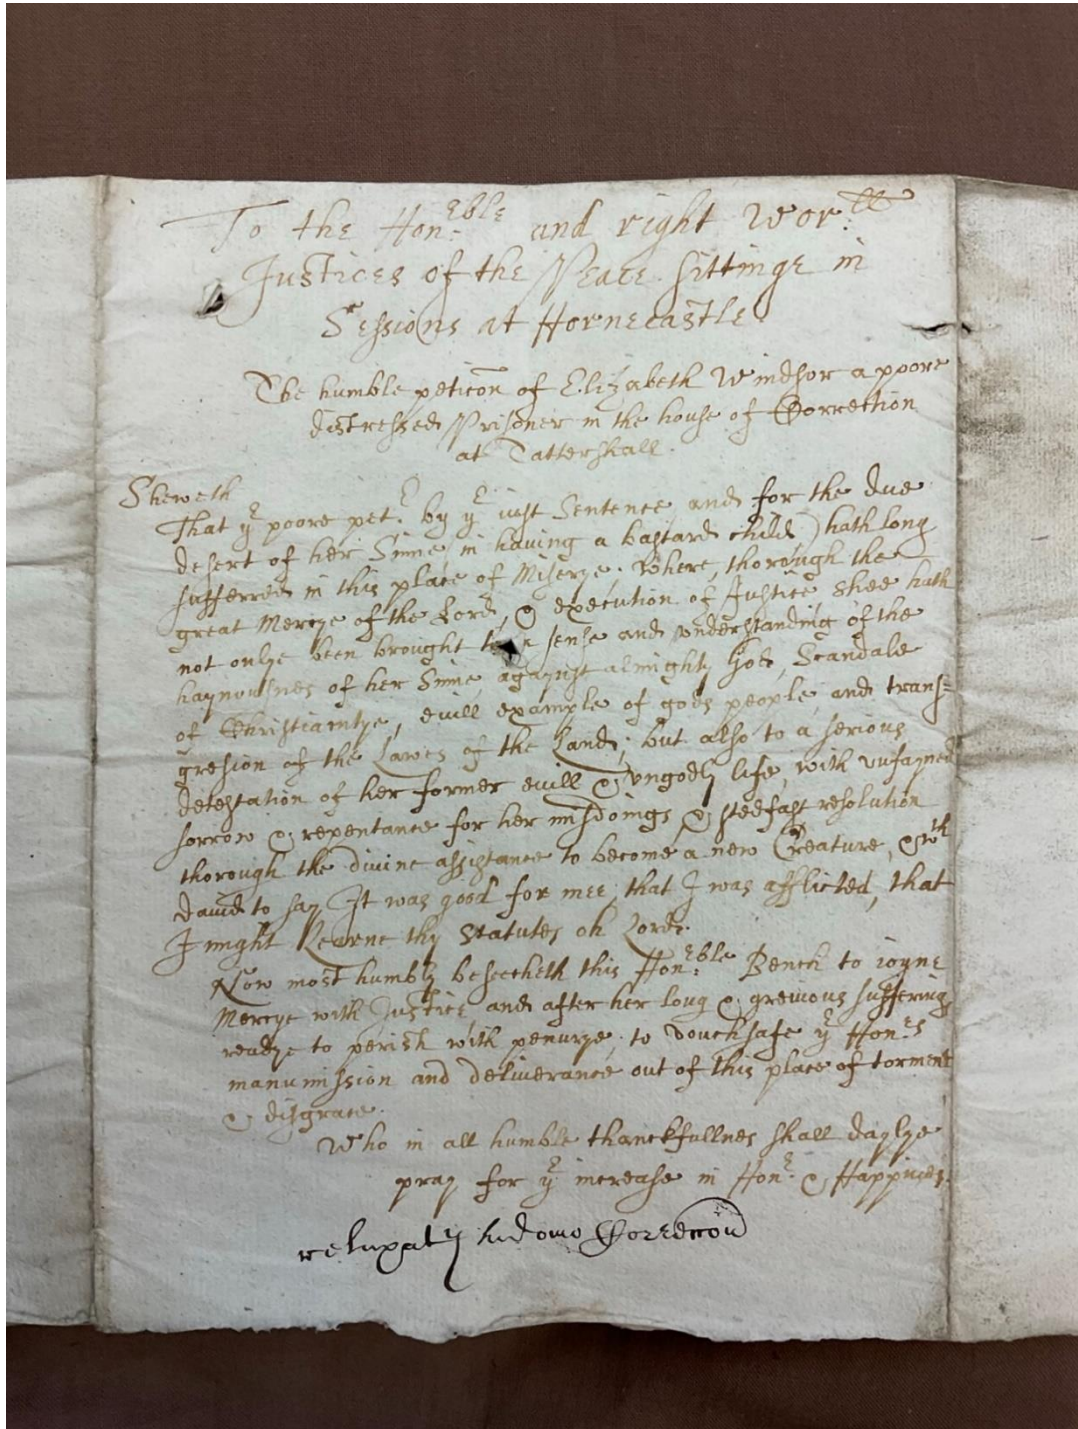 To the Hon:ble and right Wor:ll
Justices of the Peace sittinge in
Sessions at Hornecastle.
The humble peticon of Elizabeth Windsor a poore
distressed Prisoner in the house of Correction
at Tattershall.
Sheweth
That yr poore petr. by yr iust Sentence and for the due
desert of her Sinne in having a bastard child) hath long
sufferred in this place of Miserye. Where, thorough the
great Mercye of the Lord, & execution of Justice shee hath
not onlye been brought to a sense and vnderstanding of the
haynousnes of her Sinne against almighty God, Scandale
of Christianitye, evill example of gods people, and trans=
gresion of the Lawes of the Land; but also to a serious
detestation of her former evill & vngodly life, with vnfayned
sorrow & repentance for her misdoings & stedfast resolution
thorough the divine assistance to become a new Creature, & wth
david to say It was good for mee, that I was afflicted, that
I might Learne thy Statutes oh Lord.
Now most humbly beseecheth this Hon:ble Bench to ioyne
Mercye with Justice, and after her long & greivous suffering
readye to perish with penurye, to vouchsafe yr Hon:rs
manumission and deliverance out of this place of torment
& disgrace.
Who in all humble thanckfullnes shall daylye
pray for yr increase in Honr. & Happines.
relaxatr Correccon